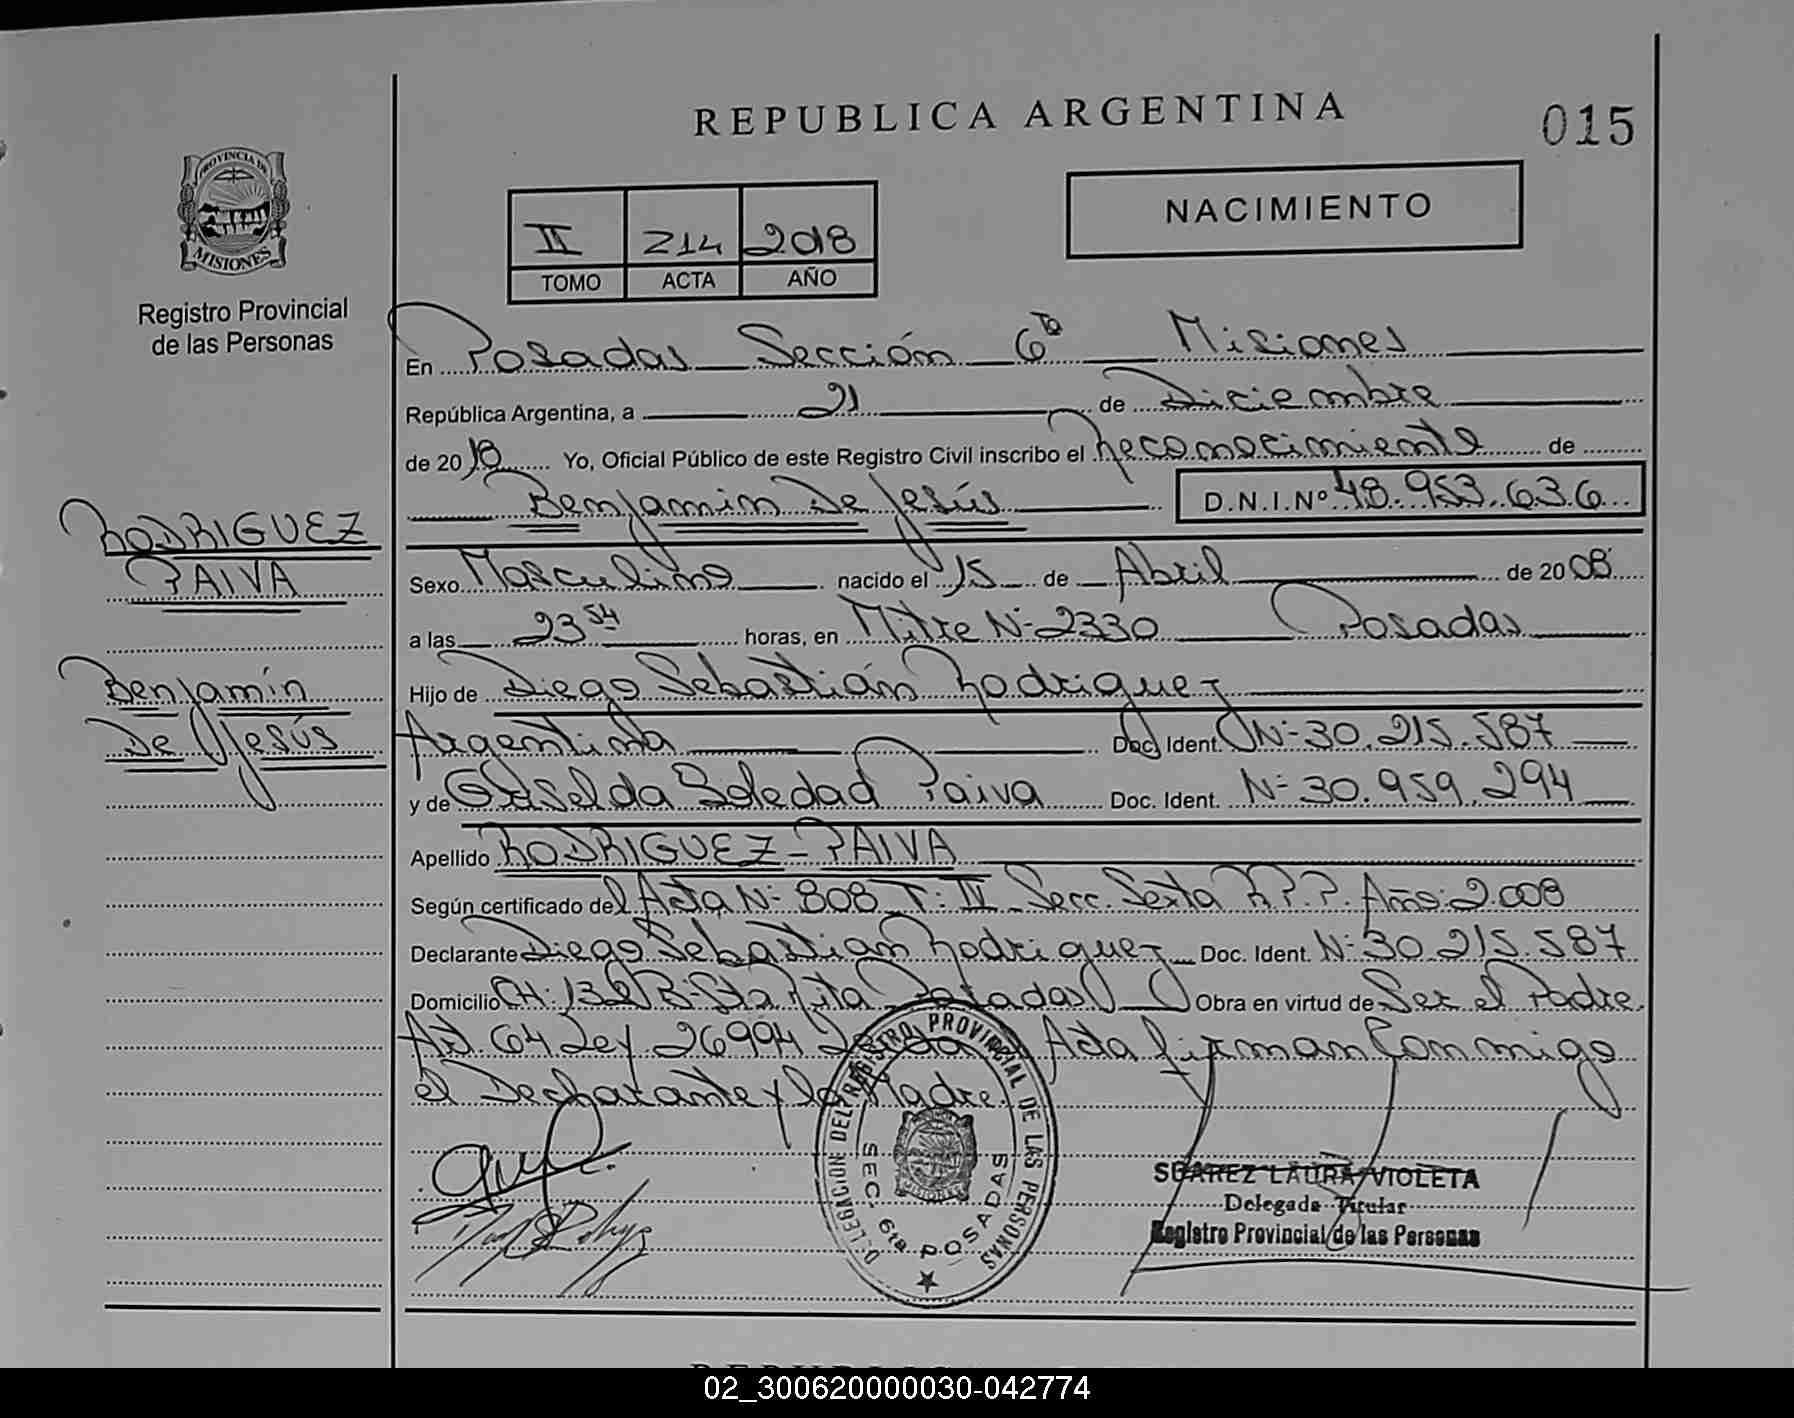 REPUBLICA ARGENTINA
015
PROVINCIA DE
MISIONES
Registro Provincial
de las Personas
II 214 2018
TOMO ACTA AÑO
NACIMIENTO
En Posadas Sección 6ta Misiones
República Argentina, a 21 de Diciembre
de 2018 Yo, Oficial Público de este Registro Civil inscribo el Reconocimiento de
Benjamin De Jesús D.N.I.Nº 48.953.636
RODRIGUEZ
PAIVA
Benjamín
De Jesús
Sexo Masculino nacido el 15 de Abril de 2008
a las 23 54 horas, en Mitre Nº 2330 Posadas
Hijo de Diego Sebastián Rodriguez
Argentina Doc. Ident. Nº 30.215.587
y de Griselda Soledad Paiva Doc. Ident. Nº 30.959.294
Apellido RODRIGUEZ - PAIVA
Según certificado del Acta Nº 808 T: IV Secc. Sexta R.P.P. Año: 2.008
Declarante Diego Sebastián Rodriguez Doc. Ident. Nº 30.215.587
Domicilio CH: 132 Bº Sta Rita Posadas Obra en virtud de Ser el Padre
Art. 64 Ley 26994 Acta firman Conmigo
el Declarante y la Madre.
DELEGACION DEL REGISTRO PROVINCIAL DE LAS PERSONAS
SEC. 6ta. POSADAS
SUAREZ LAURA VIOLETA
Delegada Titular
Registro Provincial de las Personas
02_300620000030-042774